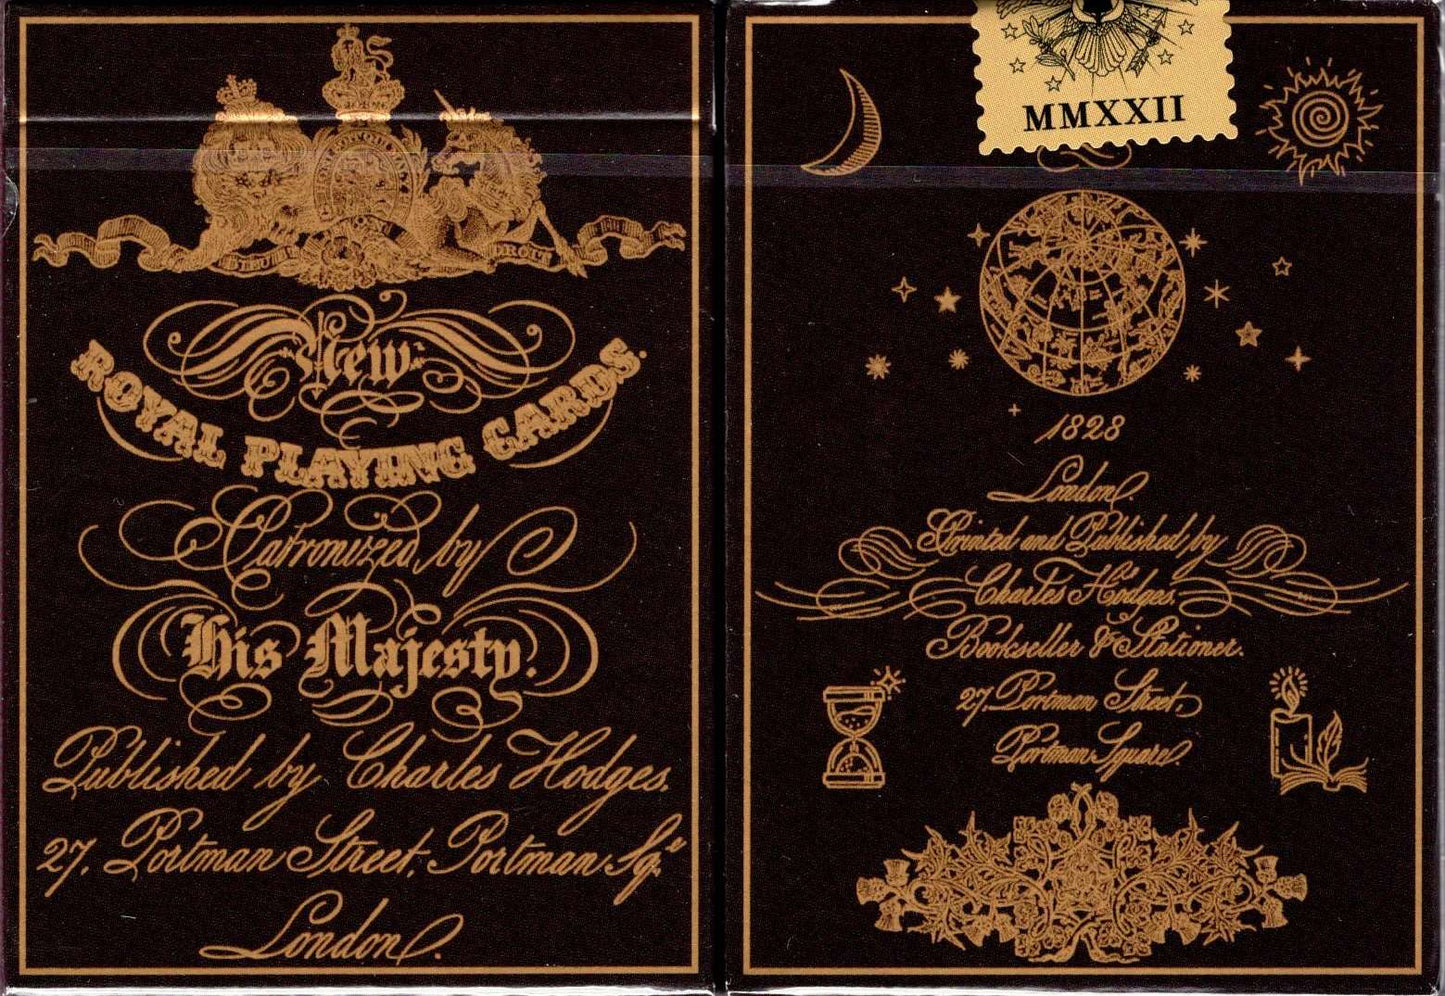 DIEU
DROIT
New
ROYAL PLAYING CARDS.
Patronized by
His Majesty.
Published by Charles Hodges.
27, Portman Street, Portman Sqe.
London.
MMXXII
1828
London.
Printed and Published by
Charles Hodges.
Bookseller & Stationer.
27, Portman Street,
Portman Square.